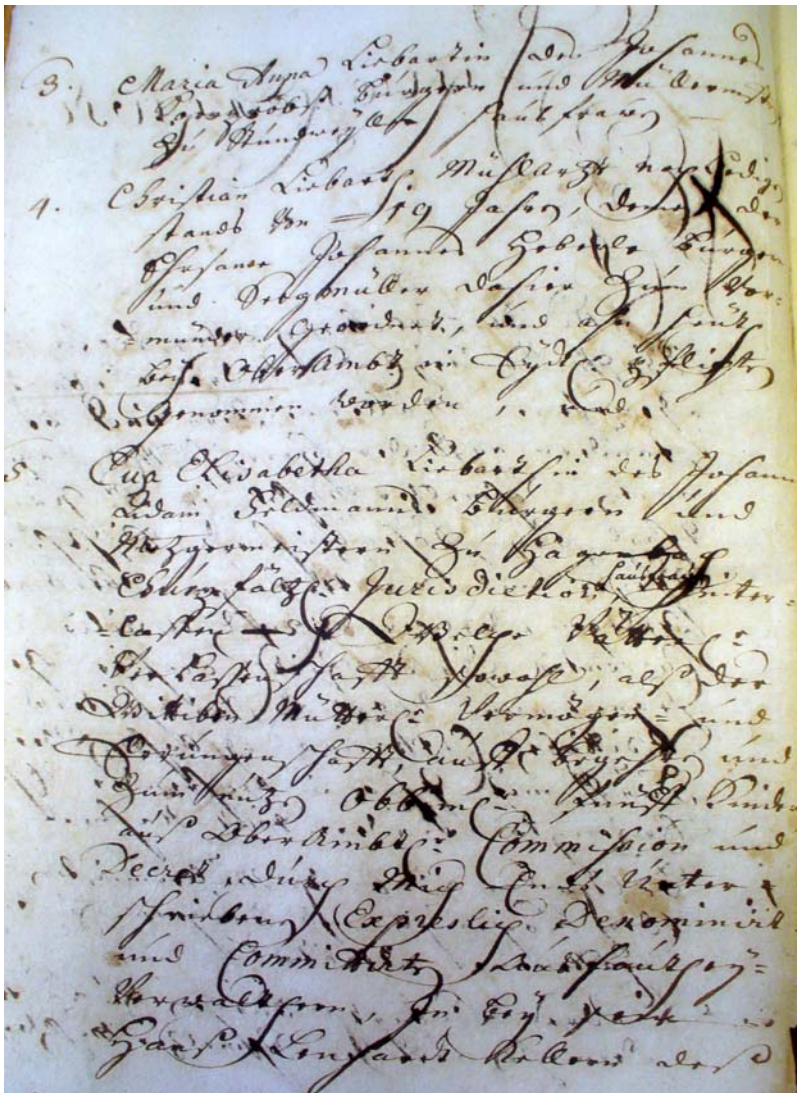 3. Maria Anna Liebartin des Johannes
Burgern und Müllermstr
zu haußfrauen
4. Christian Liebarth Mühlarzt noch ledigen
stands von 19 Jahren, deme der
Ehrsame Johannes Heberle Burger
und Seegmüller dahier zum Vor=
=munder geordnet, und ihm heut
bey Oberambt ein Eydt
abgenommen worden, und
5 Eva Elisabetha Liebarthin des Johann
Adam Feldmanns Burgern und
Metzgermeistern zu Hagenbach
Churpfältz: Jurisdiction haußfrau hinter=
=lassen Welche Vätterl:
Verlassenschafft sowohl, als der
Wittiben Mütterl: Vermögen= und
Errungenschafft, auff begehren und
zum nutzen Obbem: Fünff Kinder
auß Oberambtl: Commission und
Decret durch Mich Ends Unter=
schriebenen Expreslich Denominirt
und Committirten Außfauthey=
Verwalthern, in bey sein
Hanß Lenhardt Kellern deß